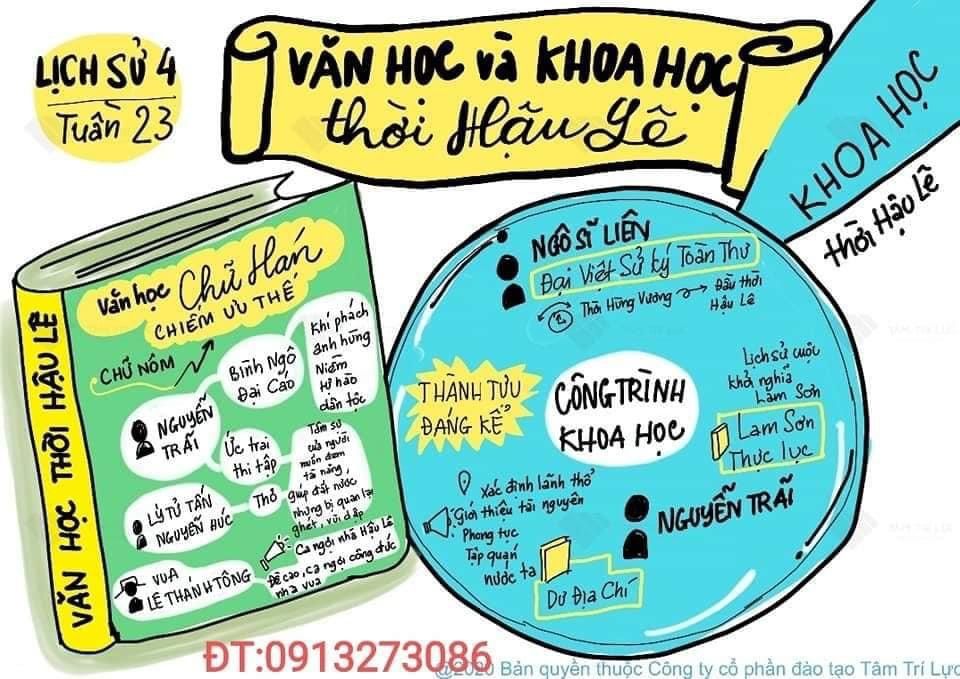 LỊCH SỬ 4
Tuần 23
VĂN HỌC và KHOA HỌC
thời Hậu Lê
KHOA HỌC
thời Hậu Lê
VĂN HỌC THỜI HẬU LÊ
Văn học Chữ Hán
CHIẾM ƯU THẾ
CHỮ NÔM
NGUYỄN
TRÃI
Bình Ngô
Đại Cáo
Khí phách
anh hùng
Niềm
tự hào
dân tộc
Ức trai
thi tập
Tâm sự
của người
muốn đem
tài năng
giúp đất nước
nhưng bị quan lại
ghét, vùi dập
LÝ TỬ TẤN
NGUYỄN HÚC
Thơ
Ca ngợi nhà Hậu Lê
Đề cao, ca ngợi công đức
nhà vua
VUA
LÊ THÁNH TÔNG
NGÔ SĨ LIÊN
Đại Việt Sử ký Toàn Thư
Thời Hùng Vương
Đầu thời
Hậu Lê
THÀNH TỰU
ĐÁNG KỂ
CÔNG TRÌNH
KHOA HỌC
Lịch sử cuộc
khởi nghĩa
Lam Sơn
Lam Sơn
Thực lục
NGUYỄN TRÃI
Xác định lãnh thổ
Giới thiệu tài nguyên
Phong tục
Tập quán
nước ta
Dư Địa Chí
ĐT:0913273086
@2020 Bản quyền thuộc Công ty cổ phần đào tạo Tâm Trí Lực